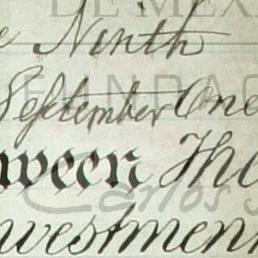 DE MÉX
e Ninth
FUNDAC
September One
ween Tho
Carlos S
nvestment